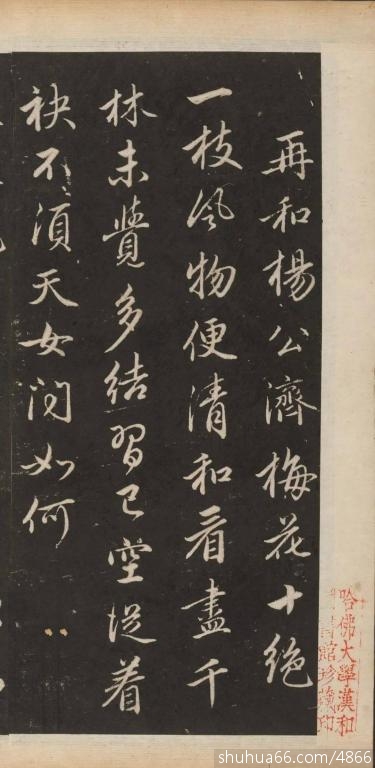 再和楊公濟梅花十絶
一枝風物便清和看盡千
林未覺多結習已空從着
袂不須天女問如何
哈佛大學漢和
圖書館珍藏印
shuhua66.com/4866